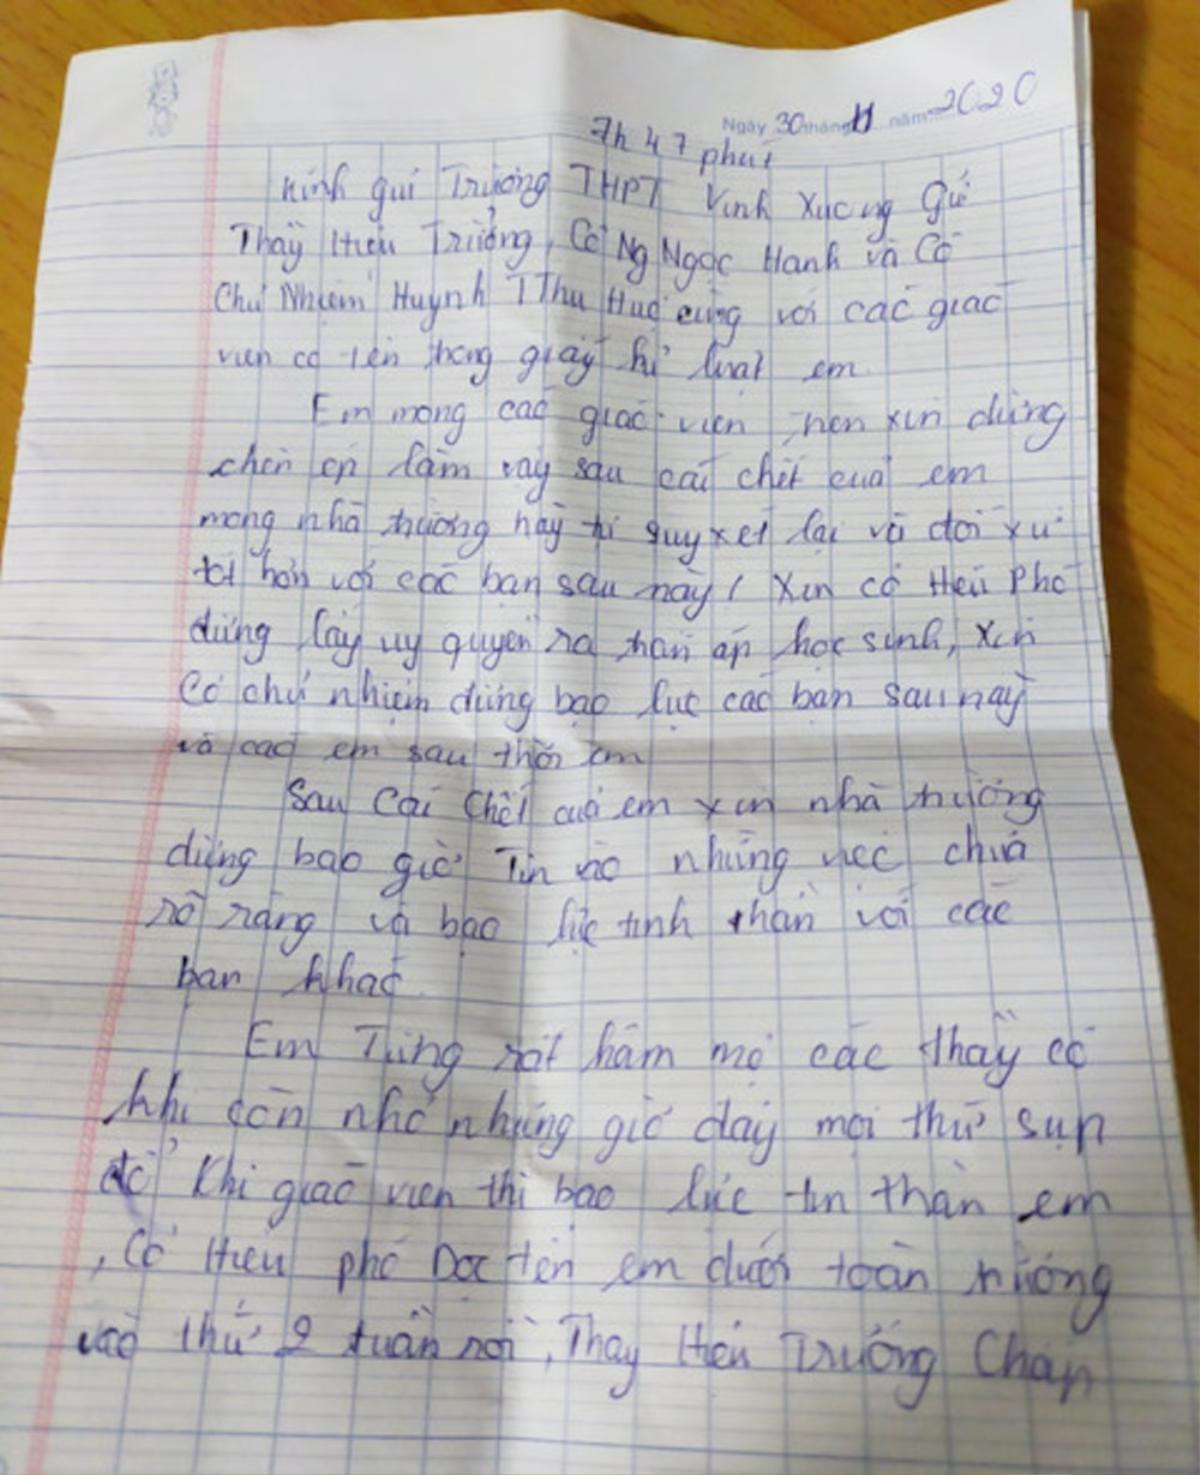 Ngày 30 tháng 11 năm 2020
7h 47 phút
Kính gửi Trường THPT Vĩnh Xương Gửi
Thầy Hiệu Trưởng, Cô Ng Ngọc Hạnh và Cô
Chủ Nhiệm Huỳnh T Thu Huệ cùng với các giáo
viên có tên trong giấy kỉ luật em.
Em mong các giáo viên, xin đừng
chèn ép lắm vậy sau cái chết của em
mong nhà trường hãy quyết lại và đối xử
tốt hơn với các bạn sau này! Xin cô Hiệu Phó
đừng lấy uy quyền ra chấn áp học sinh, Xin
Cô chủ nhiệm đừng bạo lực các bạn sau này
và các em sau thời em
Sau cái chết của em xin nhà trường
đừng bao giờ Tin vào những việc chưa
rõ ràng và bạo lực tinh thần với các
bạn khác.
Em Từng rất hâm mộ các thầy cô
khi còn nhỏ nhưng giờ đây mọi thứ sụp
đổ Khi giáo viên thì bạo lực tin thần em
, Cô Hiệu phó Đọc tên em dưới toàn trường
vào thứ 2 tuần rồi, Thầy Hiệu Trưởng Chấp